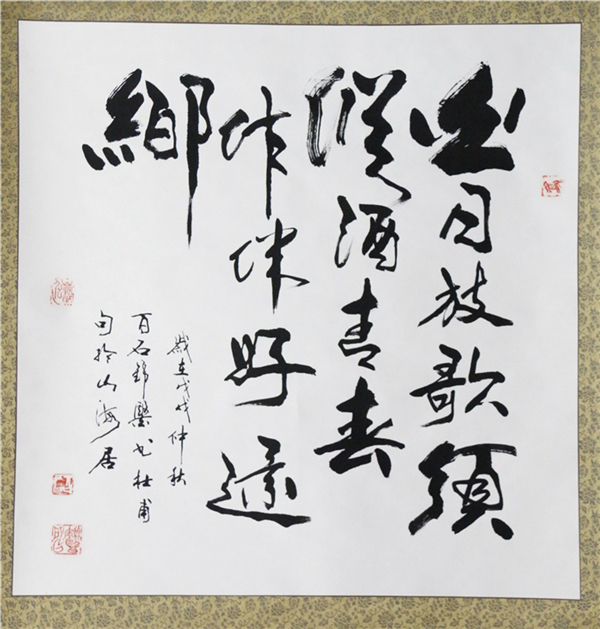 白日放歌須
縱酒青春
作伴好還
鄉
歲在戊戌仲秋
百石錦樂书杜甫
句於山海居